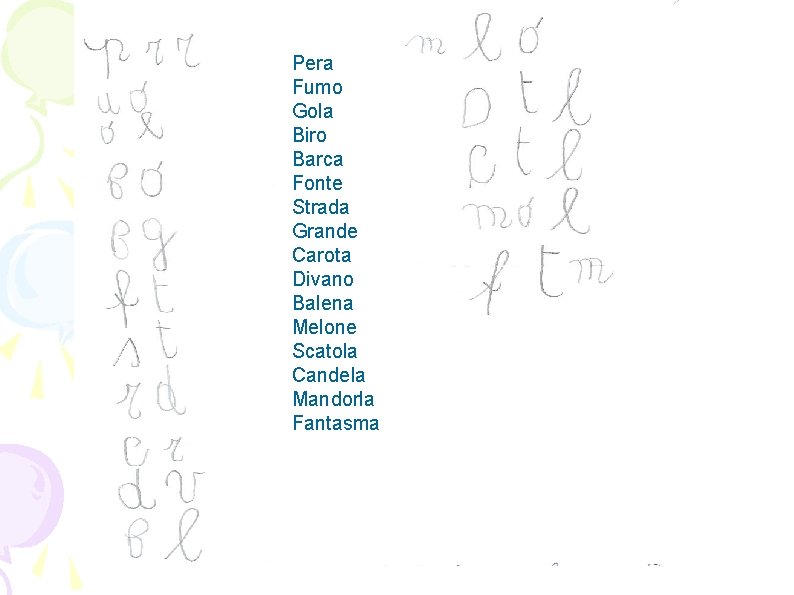 p r r
u ó
ó l
B ó
B g
f t
s t
r d
c r
d v
B l
Pera
Fumo
Gola
Biro
Barca
Fonte
Strada
Grande
Carota
Divano
Balena
Melone
Scatola
Candela
Mandorla
Fantasma
m l ó
D t l
C t l
m ó l
f t m